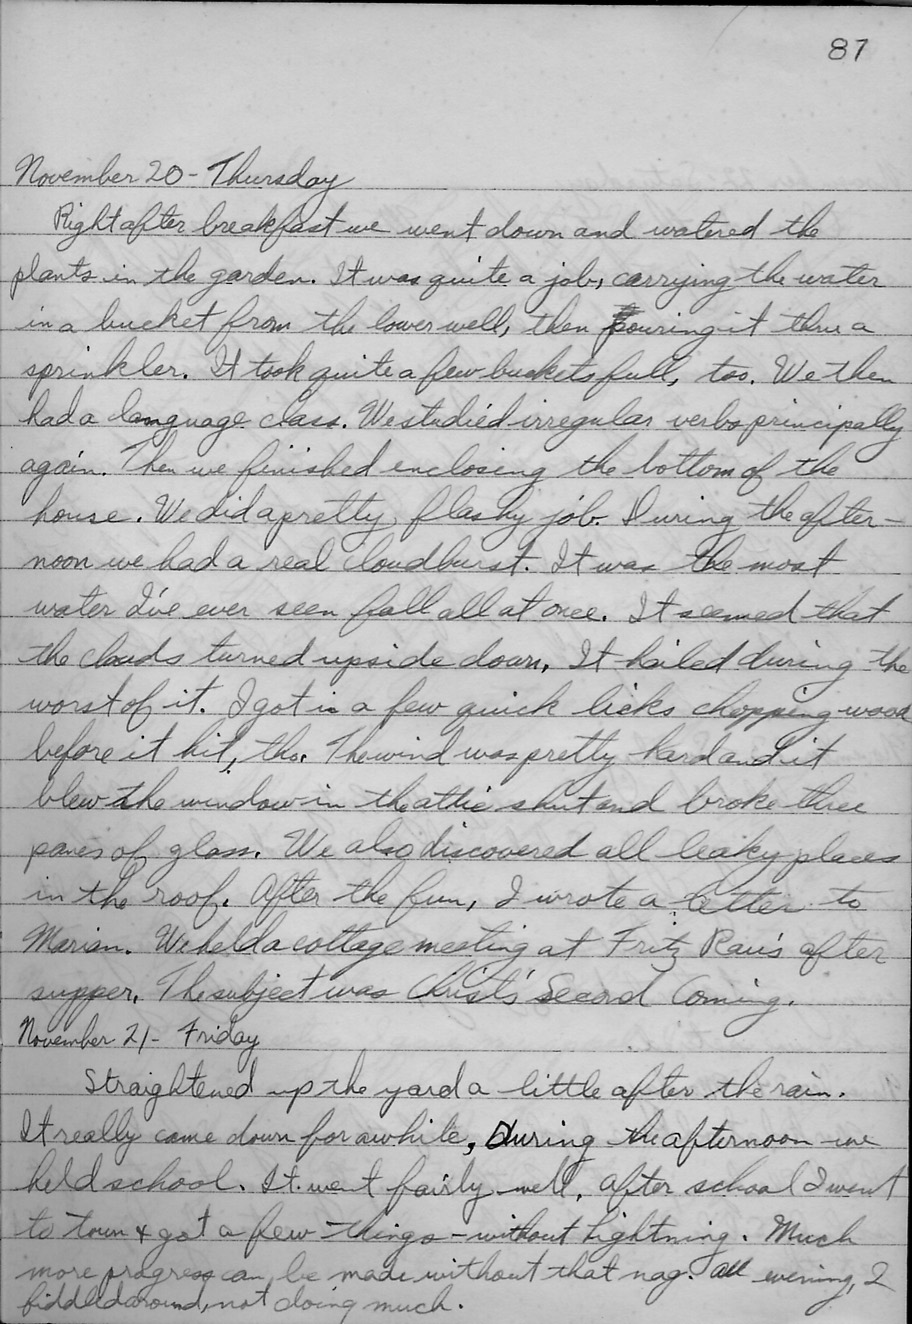 87
November 20 - Thursday
Right after breakfast we went down and watered the
plants in the garden. It was quite a job, carrying the water
in a bucket from the lower well, then pouring it thru a
sprinkler. It took quite a few buckets full, too. We then
had a language class. We studied irregular verbs principally
again. Then we finished enclosing the bottom of the
house. We did a pretty flashy job. During the after-
noon we had a real cloudburst. It was the most
water I've ever seen fall all at once. It seemed that
the clouds turned upside down. It hailed during the
worst of it. I got in a few quick licks chopping wood
before it hit, tho. The wind was pretty hard and it
blew the window in the attic shut and broke three
panes of glass. We also discovered all leaky places
in the roof. After the fun, I wrote a letter to
Marian. We held a cottage meeting at Fritz Rau's after
supper. The subject was Christ's Second Coming.
November 21 - Friday
Straightened up the yard a little after the rain.
It really came down for awhile. During the afternoon we
held school. It went fairly well. After school I went
to town & got a few things - without Lightning. Much
more progress can be made without that nag. All evening, I
fiddled around, not doing much.